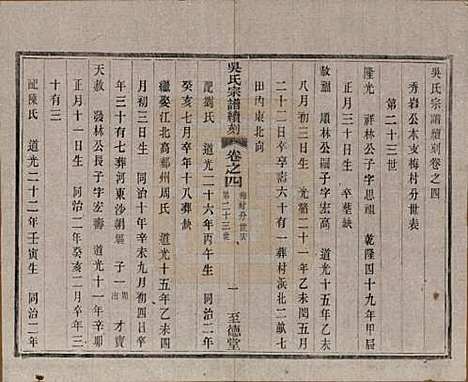 吳氏宗譜續刻卷之四
秀岩公本支梅村分世表
第二十三世
隆光 祥林公子字思順 乾隆四十九年甲辰
正月三十日生 卒葬缺
敖福 順林公嗣子字宏高 道光十五年乙未
八月初三日生 光緒二十一年乙未閏五月
二十二日卒享壽六十有一葬村浜北二畝七
田內東北向
配劉氏 道光二十六年丙午生 同治二年
癸亥六月初三日卒年十八葬缺
繼娶江北高郵州周氏 道光十五年乙未四
月初三日生 同治十年辛未九月初四日卒
年三十有七葬河東沙朝 子一 才賣
天敖 發林公長子字宏壽 道光十一年辛卯
正月十一日生 同治二年癸亥二月卒年三
十有三
配陳氏 道光二十二年壬寅生 同治二年
吳氏宗譜續刻 卷之四
梅村分世表
第二十三世
一 至德堂